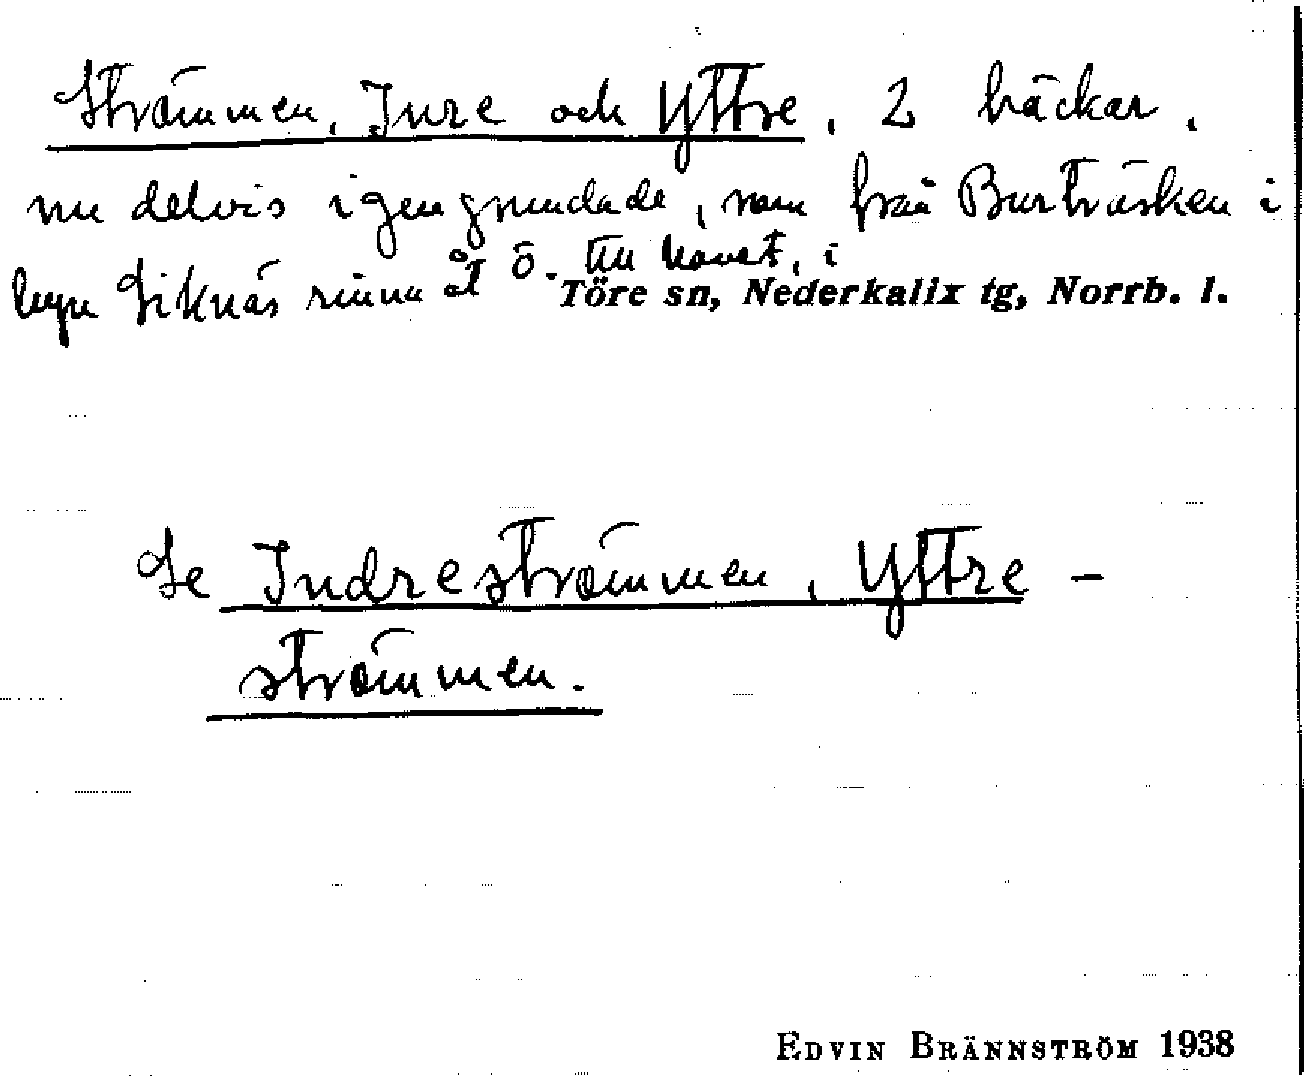 Strömmen, Inre och Yttre, 2 bäckar,
nu delvis igengrundade, som från Burträsken i
byn Siknäs rinna åt ö. till havet, i
Töre sn, Nederkalix tg, Norrb. l.
Se Indreströmmen, Yttre –
strömmen.
EDVIN BRÄNNSTRÖM 1938